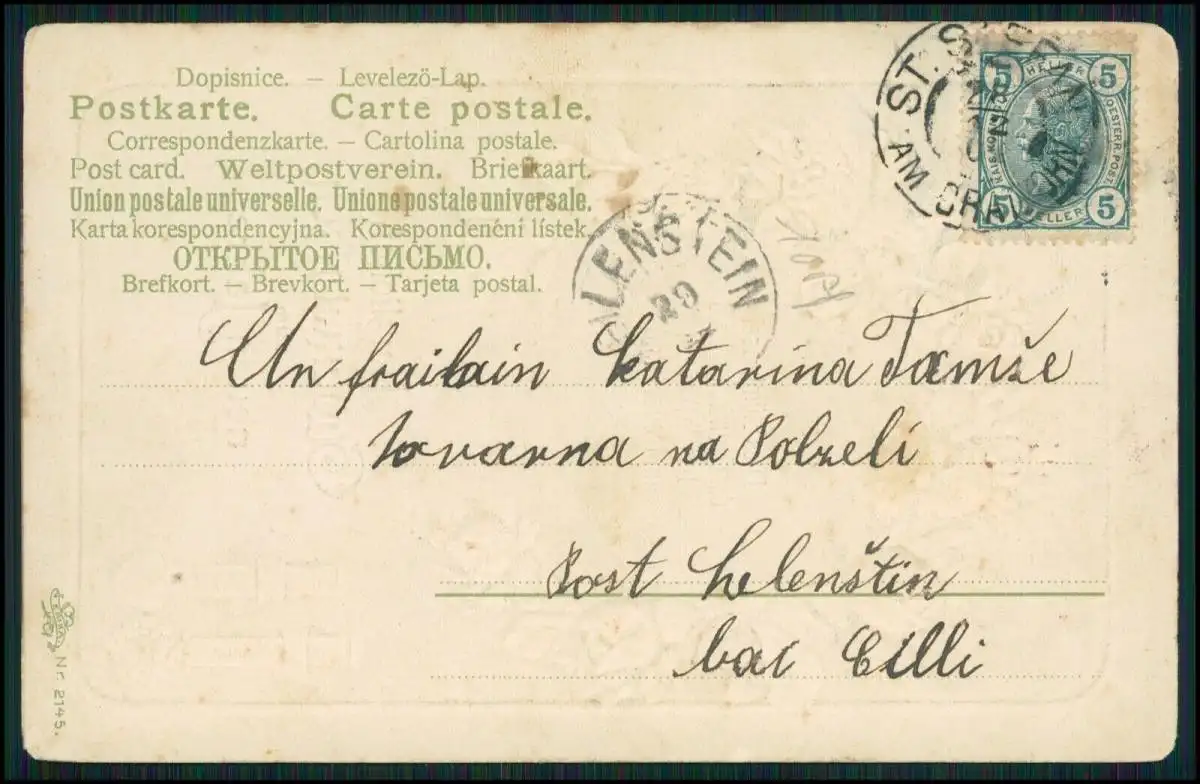 Dopisnice. – Levelezö-Lap.
Postkarte. Carte postale.
Correspondenzkarte. – Cartolina postale.
Post card. Weltpostverein. Briefkaart.
Union postale universelle. Unione postale universale.
Karta korespondencyjna. Korespondenční lístek.
ОТКРЫТОЕ ПИСЬМО.
Brefkort. – Brevkort. – Tarjeta postal.
ST. ST
AM
5 HELLER 5
5 HELLER 5
LENSTEIN
29
An frailain Katarina Tamže
tovarna na Polzeli
Post helenštin
bai Cilli
Nr. 2145.